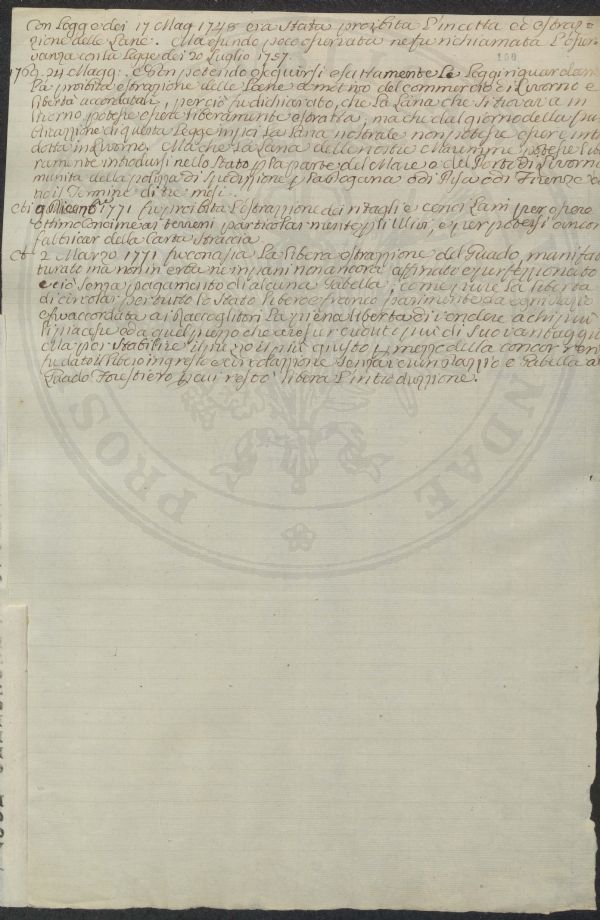 Con Legge dei 17 Mag 1748 era stata proibita l'incetta ed estraz-
zione delle Lane. Ma essendo poco osservata ne fu richiamata l'osser-
vanza con la Legge dei 20 Luglio 1757.
100
1769. 24 Magg: Non potendo eseguirsi esattamente le Leggi riguardanti
la proibita estrazione delle Lane a motivo del commercio di Livorno e
libertà accordatali, perciò fu dichiarato, che la Lana che si trovava in
Livorno potesse essere liberamente estratta, ma che dal giorno della pu-
blicazione di questa Legge in poi la Lana nostrale non potesse essere intro
dotta in Livorno. Ma che la Lana delle nostre Maremme potesse libe
ramente introdursi nello Stato p la parte del Mare o del Porto di Livorno
munita della polizza di spedizione p la Dogana o di Pisa o di Firenze
il Termine di tre mesi.
9 Dicemb 1771 fu proibita l'estrazione dei ritagli e cenci Lani per essere
ottimo concime ai terreni particolarmente p gli Ulivi, e per potersi ancora
fabbricar della Carta straccia.
2 Marzo 1771 fu concessa la libera estrazione del Guado, manifat
turato ma non in erba ne in pani non ancora affinato e perfezionato
e ciò senza pagamento di alcuna Gabella, come pure la libertà
di circolar per tutto lo Stato libero e franco parimente da ogni dazio
e fu accordata ai Raccoglitori la piena libertà di vendere a chi più
li piacesse o a quel prezzo che avesser creduto più di suo vantaggio
p stabilire il prezzo il più giusto p mezzo della concorrenza
fu dato il libero ingresso e circolazione senza alcun dazzio o Gabella al
Guado Forestiero p cui restò libera l'introduzzione.
PROS
NDAE